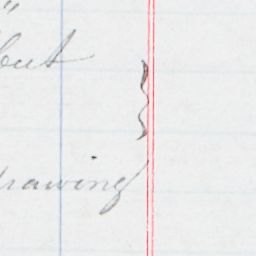 "
but
drawing